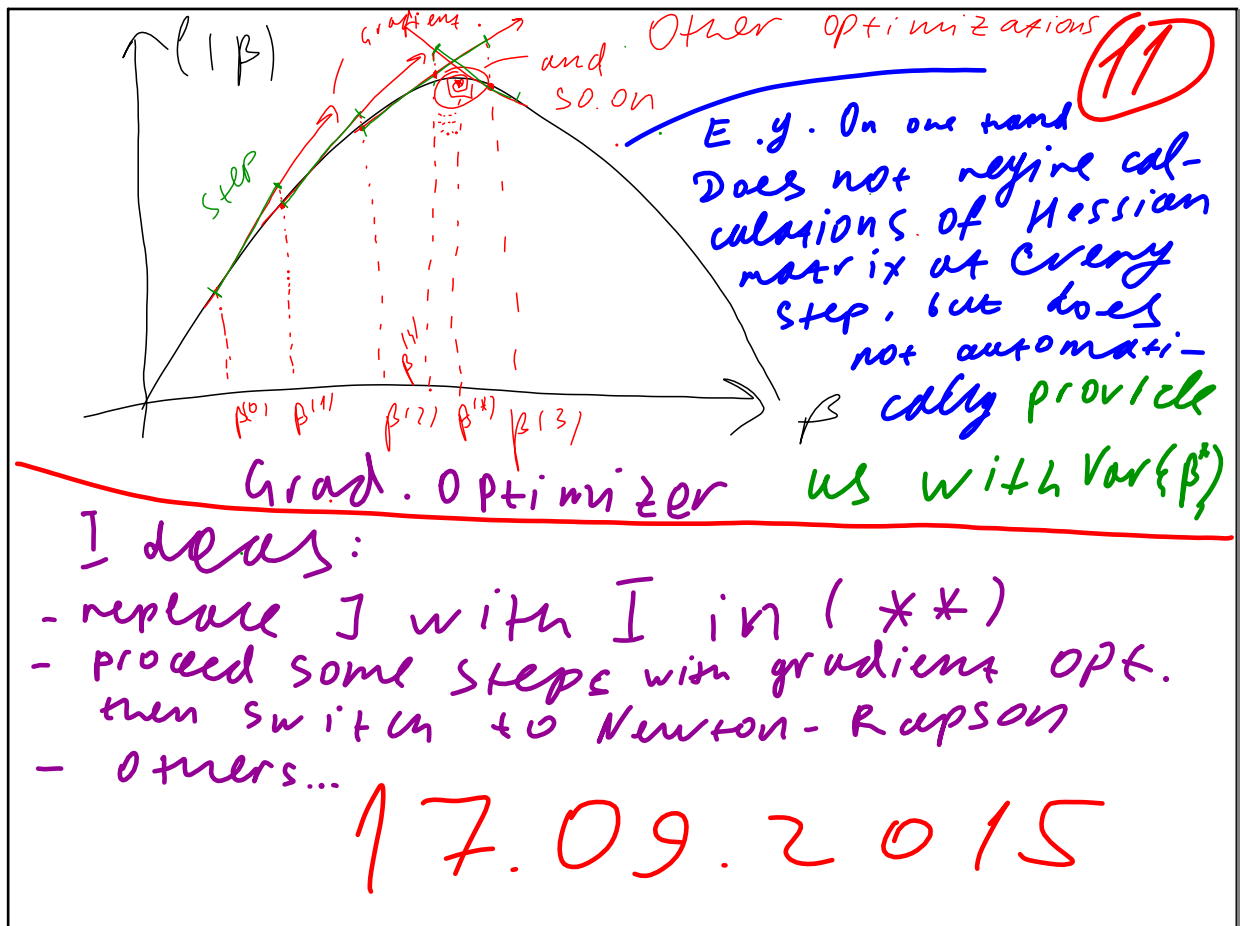 Other optimizations
11
l(β)
Gradient
and
so.on
step
E.g. On one hand
Does not reqire cal-
culations of Hessian
matrix at Every
step, but does
not automati-
cally provide
us with Var{β*}
β(0) β(1) β(2) β(4) β(*) β(3) β
Grad. Optimizer
Ideas:
- replace J with I in (**)
- proceed some steps with gradient opt.
then switch to Newton-Rapson
- others...
17.09.2015